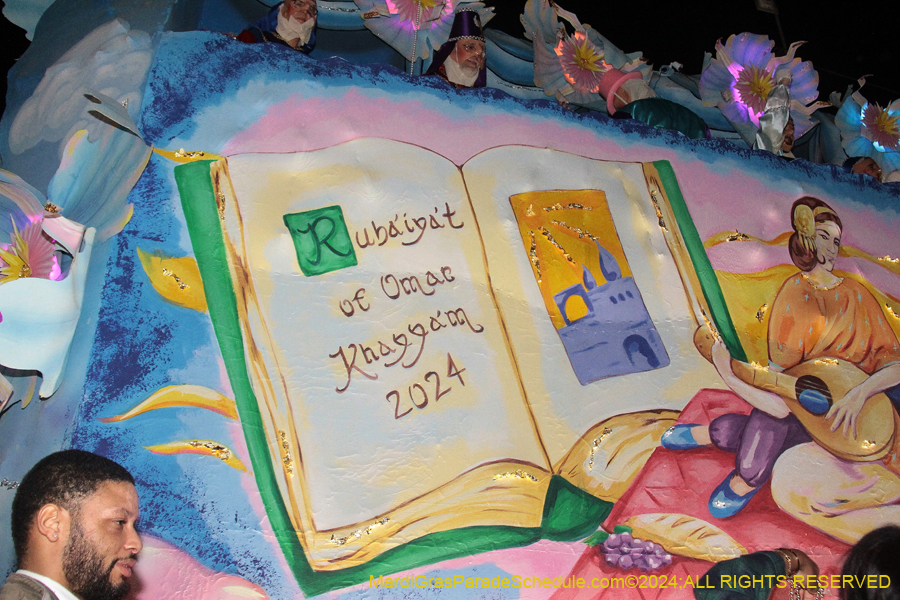 Rubáiyát
of Omar
Khayyám
2024
MardiGrasParadeSchedule.com©2024;ALL RIGHTS RESERVED